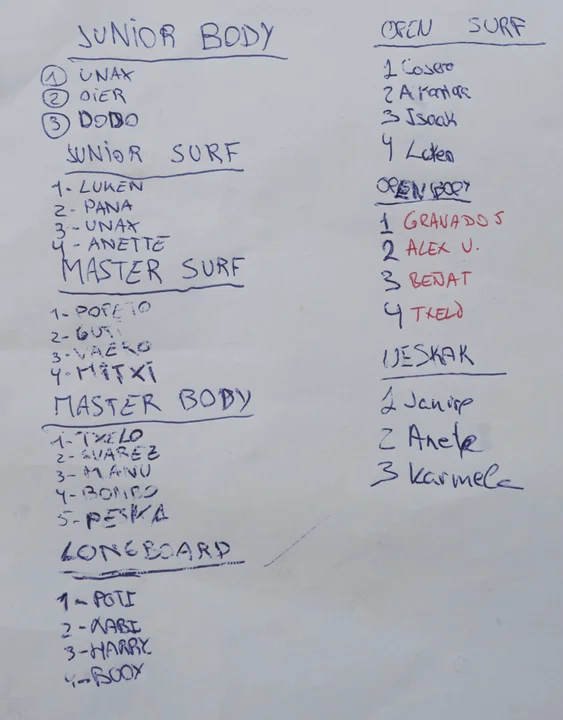 JUNIOR BODY
1 UNAX
2 OIER
3 DODO
JUNIOR SURF
1- LUKEN
2- PANA
3- UNAX
4- ANETTE
MASTER SURF
1- POPETO
2- GUTI
3-
4- MITXI
MASTER BODY
1- TXELO
2- SUAREZ
3- MANU
4-
5- PESKA
LONGBOARD
1- POTI
2- XABI
3- HARRY
4- BODY
OPEN SURF
1
2
3 Isaak
4 Luken
OPEN BODY
1 GRAVADOS
2 ALEX U.
3 BEÑAT
4 TXELO
NESKAK
1 Janire
2 Anete
3 Karmele